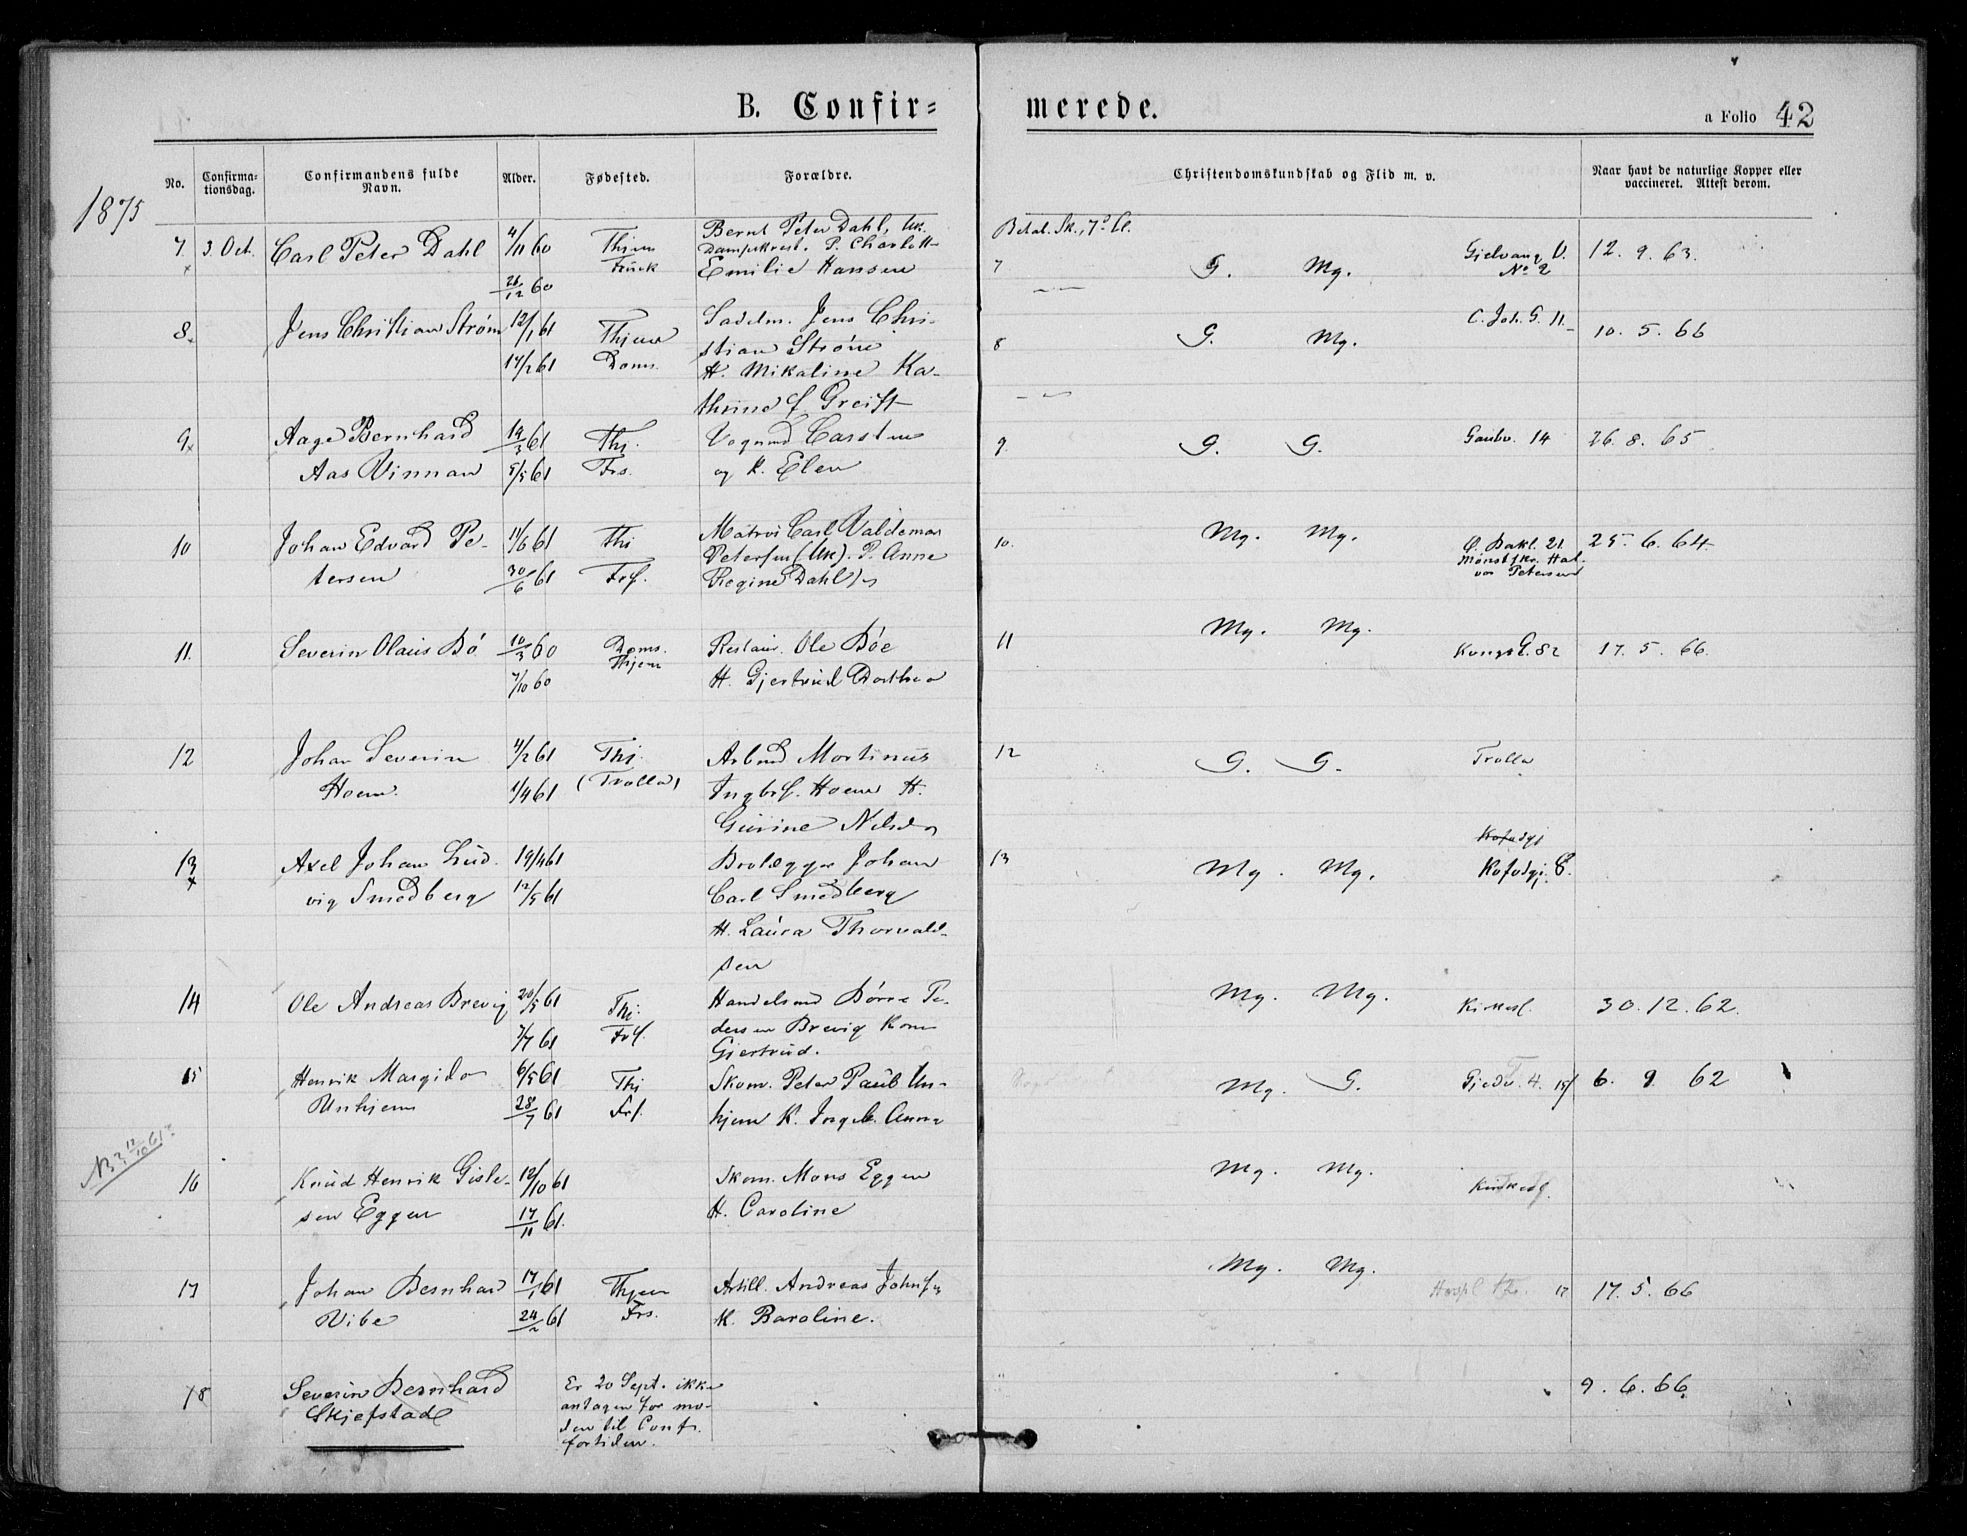 B. Confir=
merede.
a Folio 42
1875
No.
Confirma-
tionsdag.
Confirmandens fulde
Navn.
Alder.
Fødested.
Forældre.
Christendomskundskab og Flid m. v.
Naar havt de naturlige Kopper eller
vaccineret. Attest derom.
Betal. Sk., 7de Cl.
7 3. Oct. Carl Peter Dahl 4/11 60 Bernt Peter Dahl, Uk.
P. Charlott
26/12 60 Emilie Hansen
7 G. Mg. 12. 9. 63.
No 2
8 Jens Christian Strøm 12/1 61 Thjem Sadelm. Jens Chri-
stian Strøm
17/2 61 Doms. H. Mikaline Ka-
thrine f Greift
8 G. Mg. C. Joh. G. 11 10. 5. 66
9 Aage Bernhard 14/3 61 Thj. Vognmd Carsten
Aas Vinnan 5/5 61 Frs. og K. Elen
9. G. G. 14 26. 8. 65
10 Johan Edvard Pe- 11/6 61 Thj Matros Carl Valdemar
Petersen (Uk). P. Anne
tersen 30/6 61 Frf. Regine Dahl
10. Mg. Mg. Ø. Bakl. 21. 25. 6. 64
Hal-
vor Petersen
11. Severin Olaus Bö 10/3 60 Doms. Restaur. Ole Böe
Thjem
7/10 60 H. Gjertrud Dorthea
11 Mg. Mg. Kongsg. 82 17. 5. 66.
12 Johan Severin 4/2 61 Thj. Arbmd Martinus
Hoem. 1/4 61 (Trolla) Ingbrf. Hoem H.
Gurine Nilsd
12 G. G. Trolla
13 Axel Johan Lud- 19/4 61 Brolægger Johan
vig Smedberg 12/5 61 Carl Smedberg
H. Laura Thorvald-
sen
13 Mg. Mg. Kofodgj
Kofodgj.
14 Ole Andreas Brevig 20/5 61 Thj. Handelsmd Börre Pe-
7/7 61 Frf. dersen Brevig Kone
Gjertrud.
Mg. Mg. Kirkesl. 30. 12. 62.
15 Henrik Margido 6/5 61 Thj Skom. Peter Paul Un-
Unhjem 28/7 61 Frf. hjem K. Ingeb. Anna
Mg. G. Gjedv. 4. 6. 9. 62
12/10 61?
16 Knud Henrik Gisle- 12/10 61 Skom. Mons Eggen
sen Eggen 17/11 61. H. Caroline
Mg. Mg.
17 Johan Bernhard 17/1 61 Thjem Artill. Andreas Johnsen
Vibe 24/2 61 Frs. K. Baroline.
Mg. Mg. 17 17. 5. 66
18 Severin Bernhard Er 20 Sept. ikke
Skjefstad antagen for mo-
den til Conf.
fortiden.
9. 6. 66.